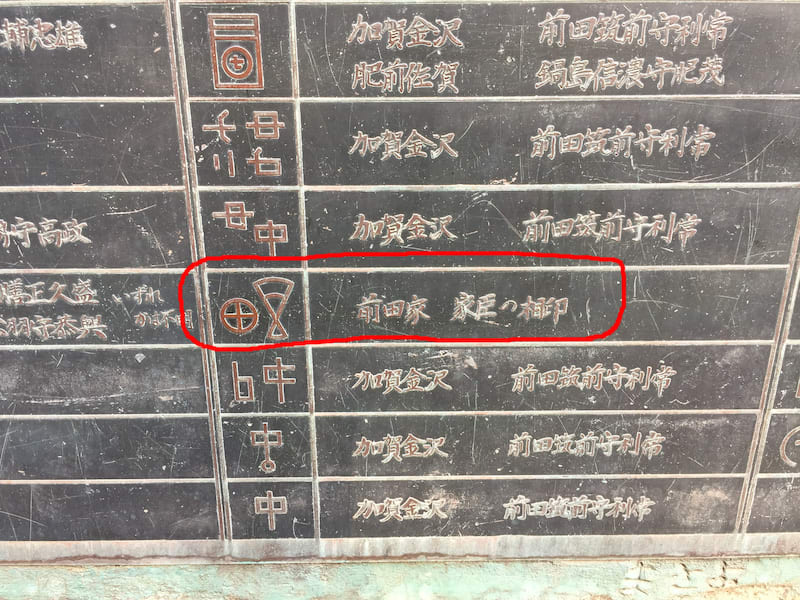 輔忠雄 加賀金沢 前田筑前守利常
肥前佐賀 鍋島信濃守勝茂
加賀金沢 前田筑前守利常
守高政 中 加賀金沢 前田筑前守利常
正久盛 ずれ 前田家 家臣の相印
守泰興 か不明
加賀金沢 前田筑前守利常
加賀金沢 前田筑前守利常
中 加賀金沢 前田筑前守利常